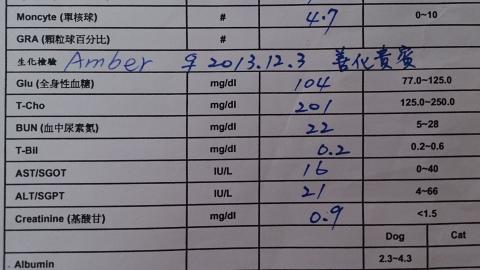 Moncyte (單核球) # 4.7 0~10
GRA (顆粒球百分比) #
生化檢驗 Amber ♀ 2013.12.3 善化貴賓
Glu (全身性血糖) mg/dl 104 77.0~125.0
T-Cho mg/dl 201 125.0~250.0
BUN (血中尿素氮) mg/dl 22 5~28
T-Bil mg/dl 0.2 0.2~0.6
AST/SGOT IU/L 16 0~40
ALT/SGPT IU/L 21 4~66
Creatinine (基酸甘) mg/dl 0.9 <1.5
Dog Cat
Albumin 2.3~4.3